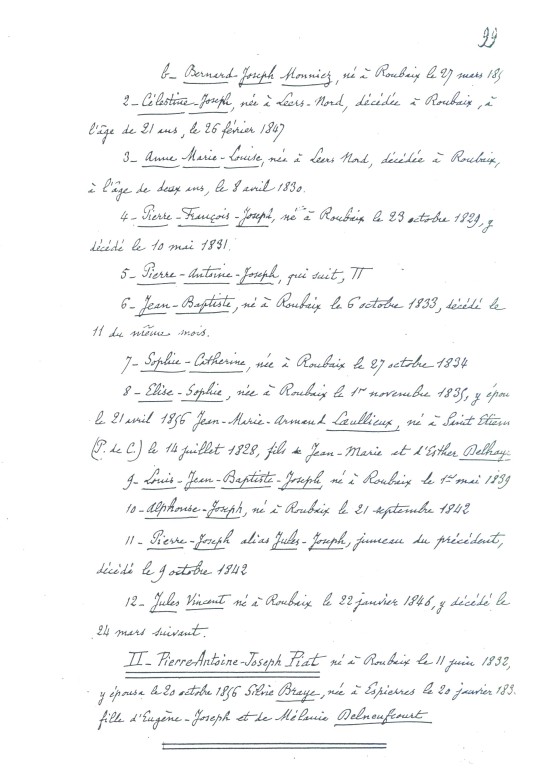 99
b_ Bernard Joseph Monniez, né à Roubaix le 27 mars 185
2_ Célestine-Joseph, née à Leers-Nord, décédée à Roubaix, à
l'âge de 21 ans, le 26 février 1847
3_ Anne Marie-Louise, née à Leers Nord, décédée à Roubaix,
à l'âge de deux ans, le 8 avril 1830.
4_ Pierre-François-Joseph, né à Roubaix le 23 octobre 1829, y
décédé le 10 mai 1831.
5_ Pierre-Antoine-Joseph, qui suit, II
6_ Jean-Baptiste, né à Roubaix le 6 octobre 1833, décédé le
11 du même mois.
7_ Sophie-Catherine, née à Roubaix le 27 octobre 1834
8_ Elise-Sophie, née à Roubaix le 1er novembre 1835, y épou
le 21 avril 1856 Jean-Marie-Armand Lœullieux, né à Saint Etienn
(P. de C.) le 14 juillet 1828, fils de Jean-Marie et d'Esther Delhay
9_ Louis-Jean-Baptiste-Joseph, né à Roubaix le 1er mai 1839
10_ Alphonse-Joseph, né à Roubaix le 21 septembre 1842
11_ Pierre-Joseph alias Jules-Joseph, jumeau du précédent,
décédé le 9 octobre 1842
12_ Jules Vincent né à Roubaix le 22 janvier 1846, y décédé le
24 mars suivant.
II_ Pierre-Antoine-Joseph Piat né à Roubaix le 11 juin 1832,
y épousa le 20 octobre 1856 Silvie Braye, née à Espierres le 20 janvier 183
fille d'Eugène-Joseph et de Mélanie Delneufcourt